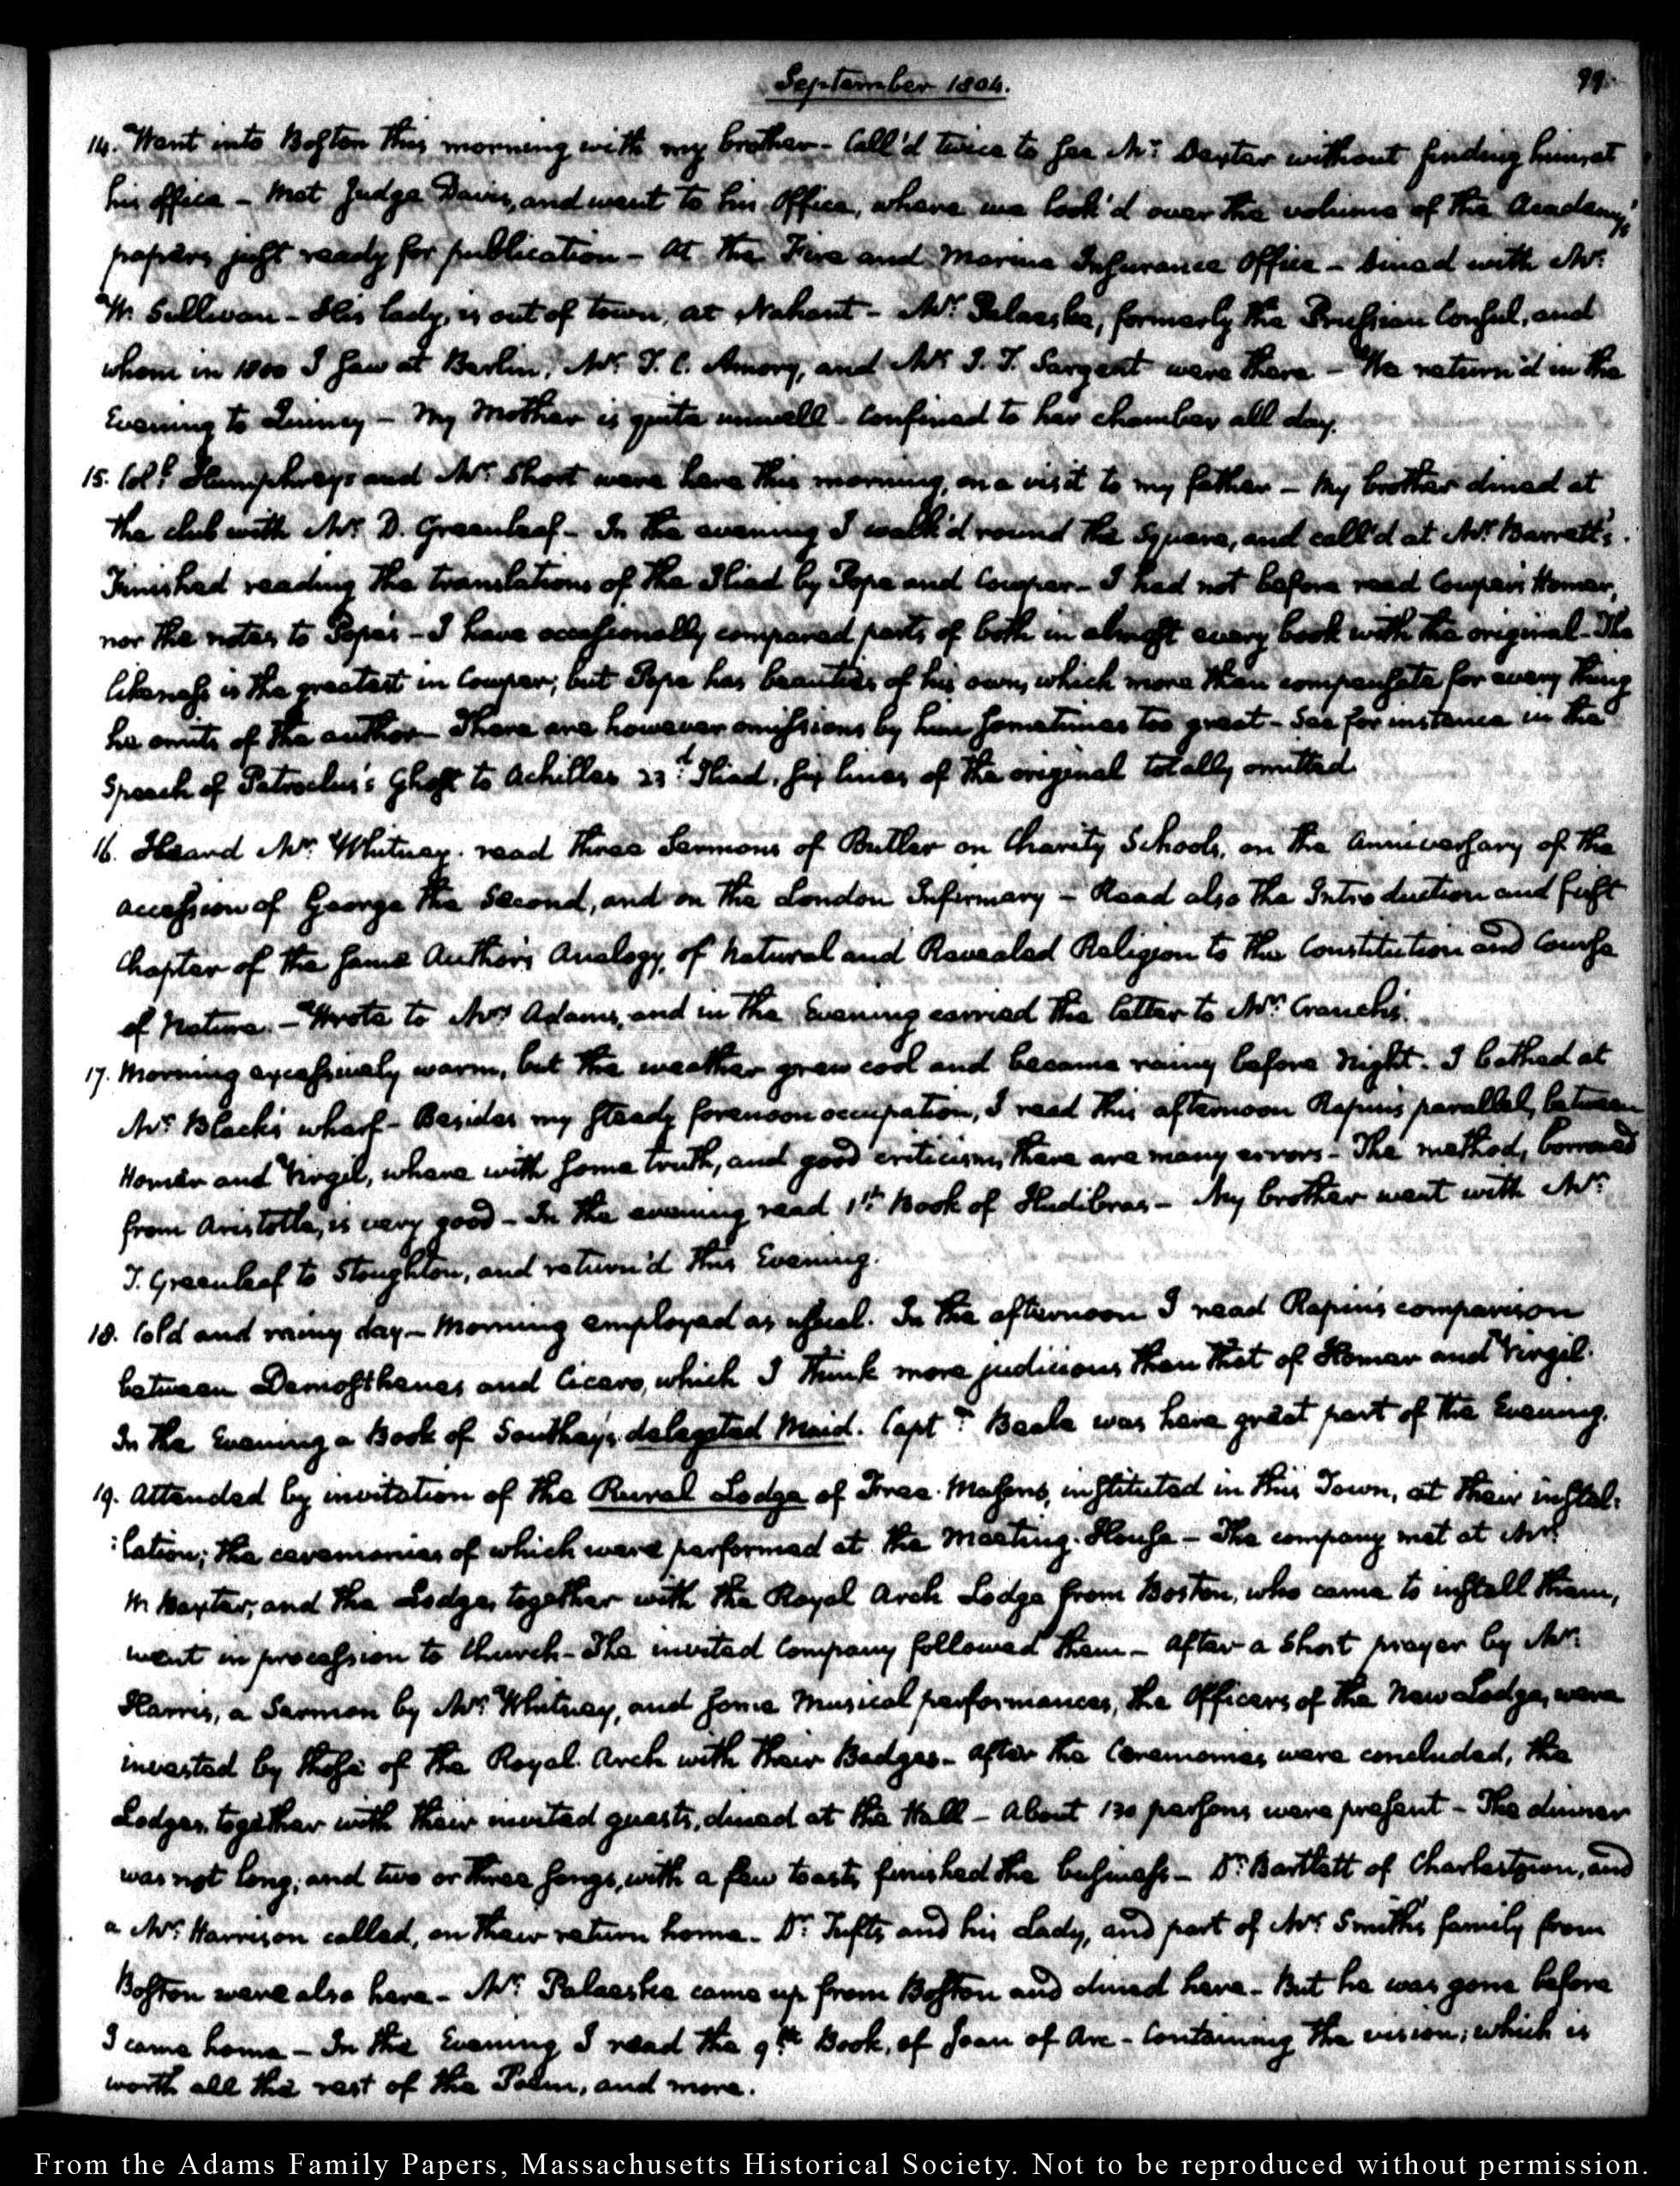 September 1804.
99.
14. Went into Boston this morning with my brother - Call'd twice to see Mr. Dexter without finding him at
his office - Met Judge Davis, and went to his Office, where we look'd over the volume of the Academy's
papers, just ready for publication - At the Fire and Marine Insurance Office - Dined with Mr.
W. Sullivan - His lady, is out of town, at Nahant - Mr. Palaeske, formerly the Prussian Consul, and
whom in 1800 I saw at Berlin, Mr. T. C. Amory, and Mr. D. Sargent were there - We return'd in the
Evening to Quincy - My Mother is quite unwell - Confined to her chamber all day.
15. Coll. Humphreys and Mr. Short were here this morning, on a visit to my father - My brother dined at
the club with Mr. D. Greenleaf - In the evening I walk'd round the Square, and call'd at Mr. Barrett's.
Finished reading the translations of the Iliad by Pope and Cowper - I had not before read Cowper's Homer,
nor the notes to Pope's - I have occasionally compared parts of both in almost every book with the original - The
likeness is the greatest in Cowper; but Pope has beauties of his own, which more than compensate for every thing
he omits of the author - There are however omissions by him sometimes too great - See for instance in the
Speech of Patroclus's Ghost to Achilles 23d. Iliad, six lines of the original totally omitted.
16. Heard Mr. Whitney. read three Sermons of Butler on Charity Schools, on the Anniversary of the
accession of George the Second, and on the London Infirmary - Read also the Introduction and first
Chapter of the same Author's Analogy, of Natural and Revealed Religion to the Constitution and Course
of Nature. - Wrote to Mrs. Adams, and in the Evening carried the letter to Mr. Cranch's.
17. Morning excessively warm, but the weather grew cool and became rainy before Night. I bathed at
Mr. Black's wharf - Besides my steady forenoon occupation, I read this afternoon Rapin's parallel, between
Homer and Virgil, where with some truth, and good criticism, there are many errors - The method, borrowed
from Aristotle, is very good - In the evening read 1st. Book of Hudibras - My brother went with Mr.
T. Greenleaf to Stoughton, and return'd this Evening.
18. Cold and rainy day - Morning employed as usual. In the afternoon I read Rapin's comparison
between Demosthenes and Cicero, which I think more judicious than that of Homer and Virgil.
In the Evening a Book of Southey's delegated Maid. Captn. Beale was here great part of the Evening.
19. Attended by invitation of the Rural Lodge of Free-Masons, instituted in this Town, at their instal:
:lation; the ceremonies of which were performed at the Meeting-House - The company met at Mr.
W. Baxter; and the Lodge, together with the Royal Arch Lodge from Boston, who came to install them,
went in procession to Church - The invited Company followed them - After a short prayer by Mr.
Harris, a Sermon by Mr. Whitney, and some Musical performances, the Officers of the New Lodge, were
invested by those of the Royal Arch with their Badges - After the Ceremonies were concluded, the
Lodges, together with their invited guests, dined at the Hall - About 130 persons were present - The dinner
was not long; and two or three songs, with a few toasts, finished the business - Dr. Bartlett of Charlestown, and
a Mr. Harrison called, on their return home - Dr. Tufts and his Lady, and part of Mr. Smith's family from
Boston were also here - Mr. Palaeske came up from Boston and dined here - But he was gone before
I came home - In the Evening I read the 9th. Book, of Joan of Arc - Containing the vision; which is
worth all the rest of the Poem, and more.
From the Adams Family Papers, Massachusetts Historical Society. Not to be reproduced without permission.